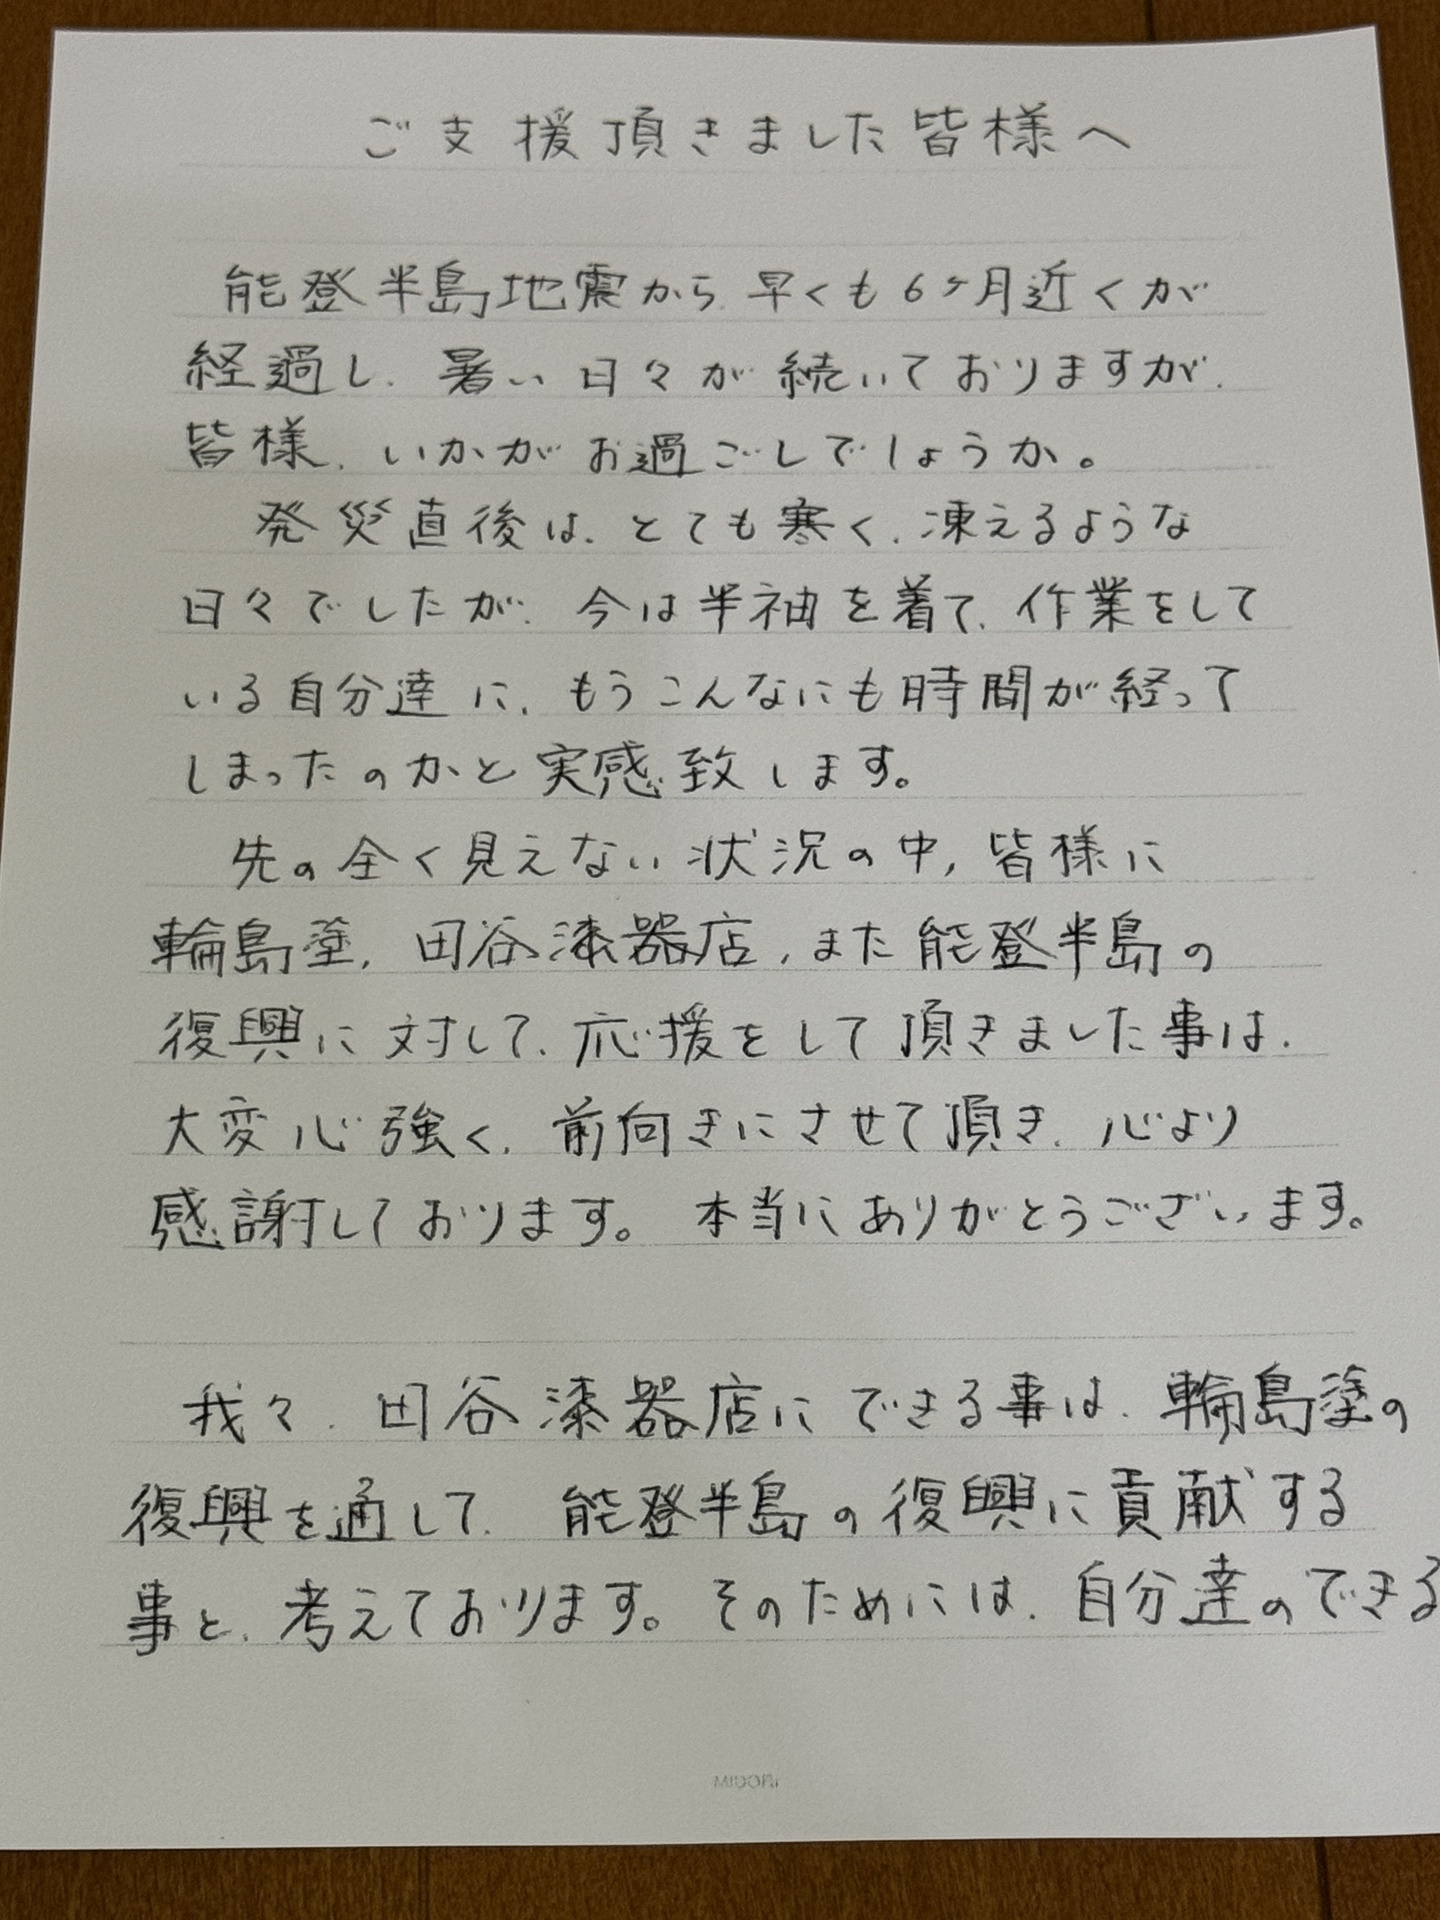 ご支援頂きました皆様へ
能登半島地震から、早くも6ヶ月近くが
経過し、暑い日々が続いておりますが、
皆様、いかがお過ごしでしょうか。
発災直後は、とても寒く、凍えるような
日々でしたが、今は半袖を着て、作業をして
いる自分達に、もうこんなにも時間が経って
しまったのかと実感致します。
先の全く見えない状況の中、皆様に
輪島塗、田谷漆器店、また能登半島の
復興に対して、応援をして頂きました事は、
大変心強く、前向きにさせて頂き、心より
感謝しております。本当にありがとうございます。
我々、田谷漆器店にできる事は、輪島塗の
復興を通して、能登半島の復興に貢献する
事と、考えております。そのためには、自分達のできる
MIDORI